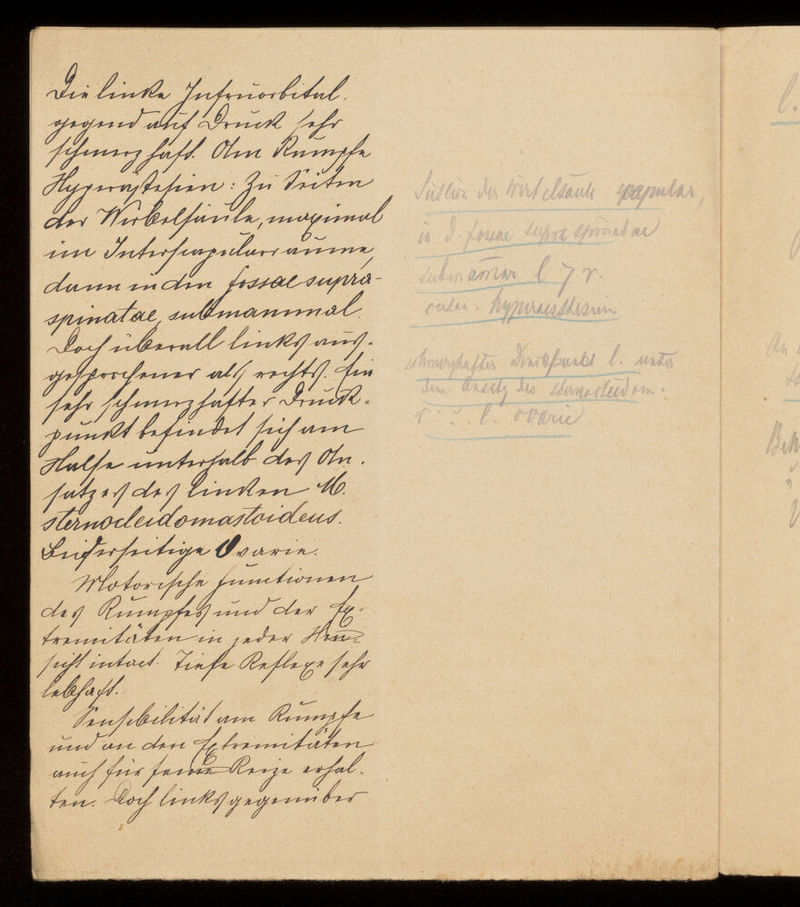 Die linke Infraorbital-
gegend auf Druck sehr
schmerzhaft. Am Rumpfe
Hyperästesien: Zu Seiten
der Wirbelsäule, maximal
im Interscapularraume,
dann in den fossae supra-
spinatae, submammal.
Doch überall links aus-
gesprochener als rechts. Ein
sehr schmerzhafter Druck-
punkt befindet sich am
Halse unterhalb des An-
satzes des linken M.
sternocleidomastoideus.
Beiderseitige Ovarie.
Motorische Functionen
des Rumpfes und der Ex-
tremitäten in jeder Hin-
sicht intact. Tiefe Reflexe sehr
lebhaft.
Sensibilität am Rumpfe
und an den Extremitäten
auch für feine Reize erhal-
ten. Doch links gegenüber
der Wirbelsäule
in d. fossae supraspinatae
l > r.
hyperaesthesien
schmerzhafter Druckpunkt l. unter
dem Ansatz des sternocleidom.
r. u. l. ovarie
l.